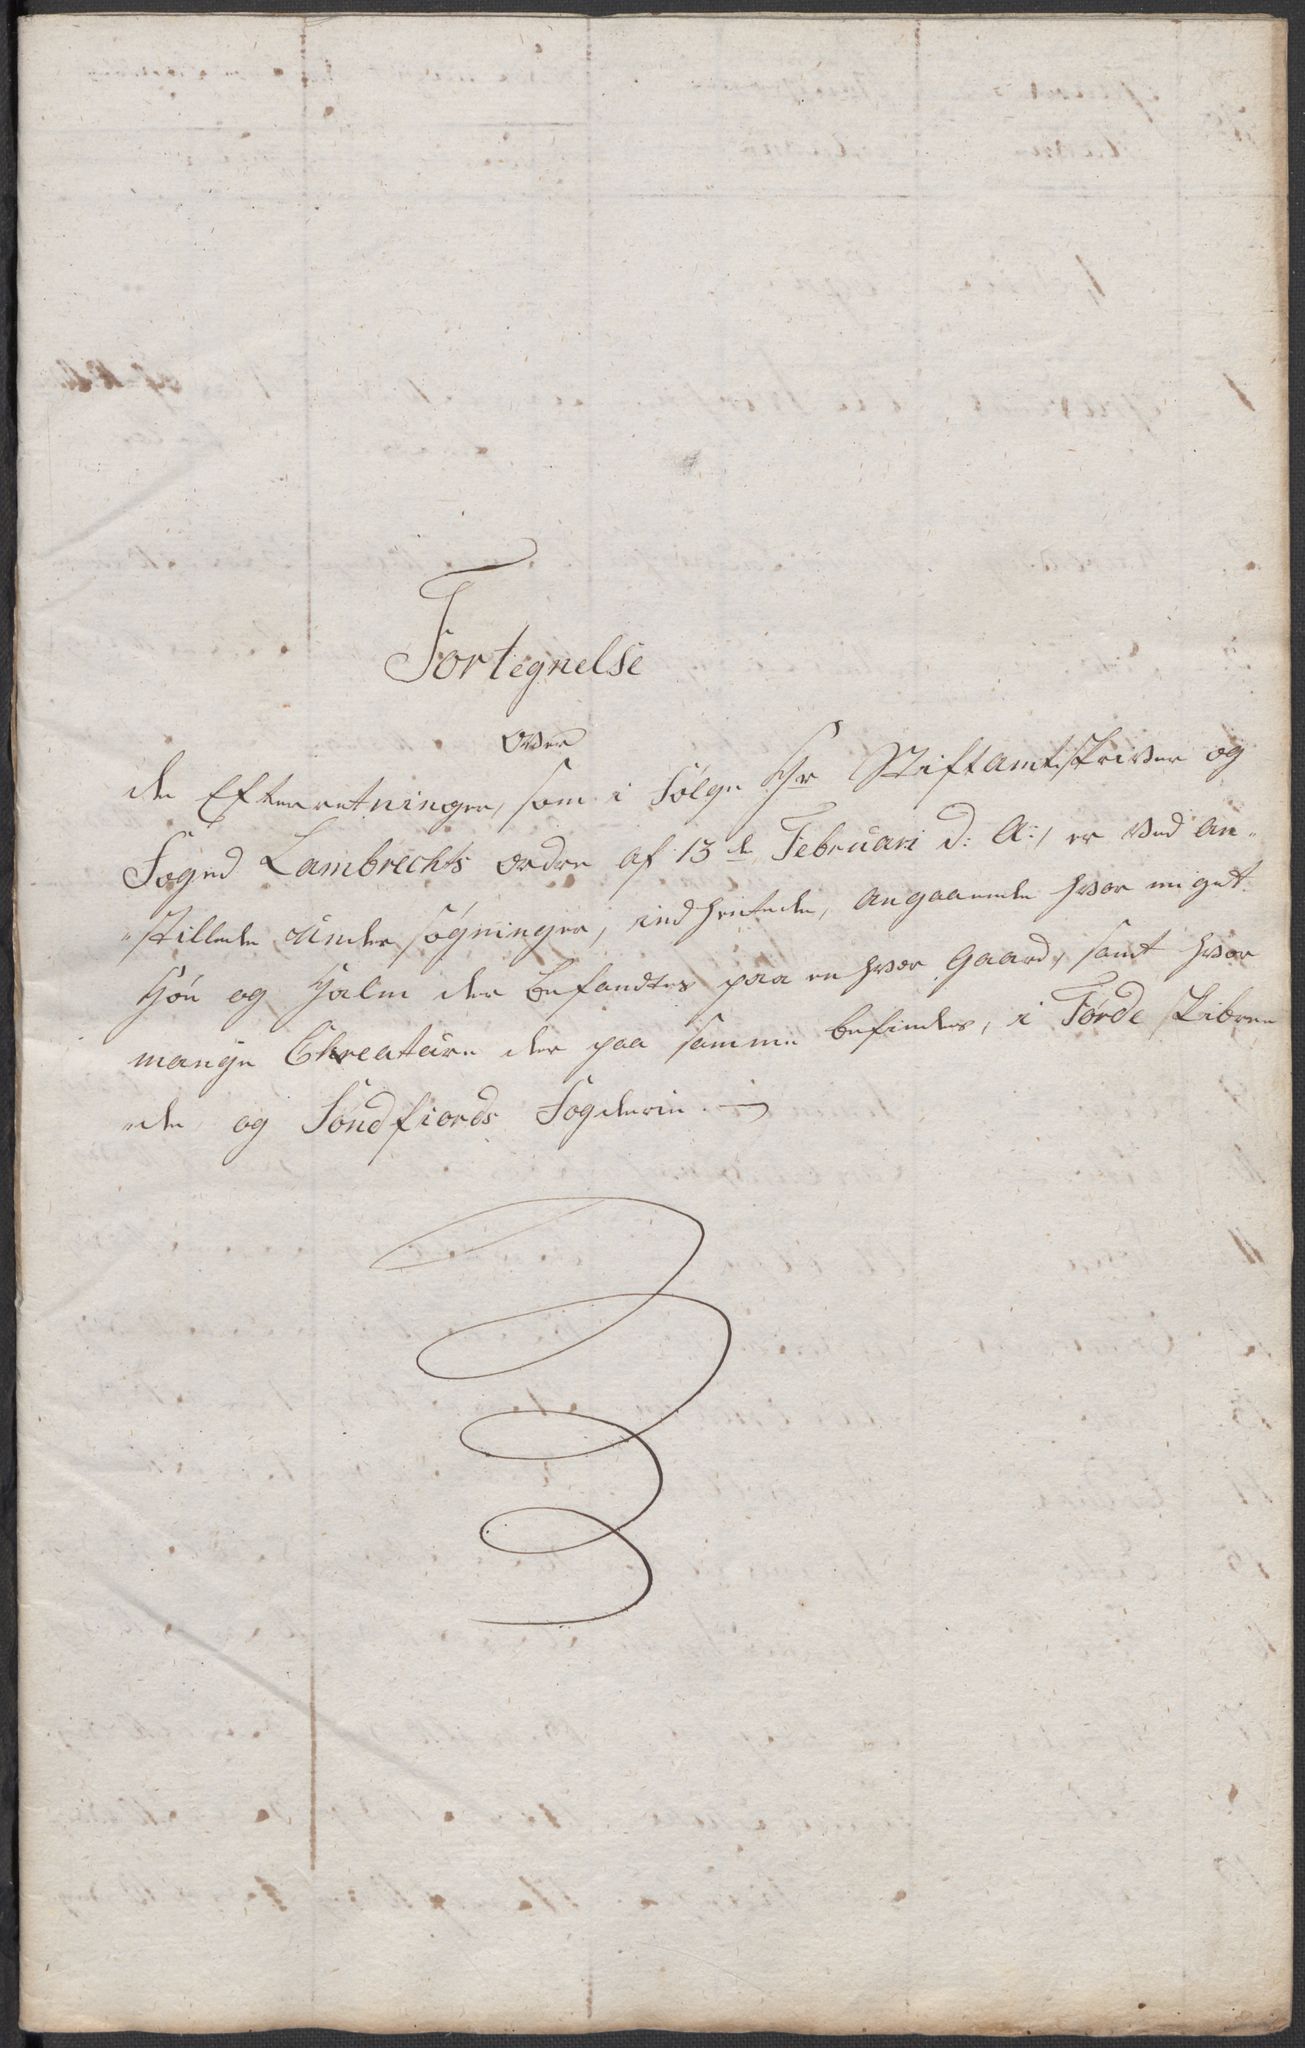 Fortegnelse
over
de Efterretninger, som i Følge Hr Stiftamtskriver og
Foged Lambrechts ordre af 13de Februari d: A:, er ved an„
„stillede undersøgninger, indhentede, angaaende hvor meget
Høe og Halm der befandtes paa en hver Gaard, samt hvor
mange Chreature der paa samme befindes, i Førde Skibree
„de og Søndfiords Fogderie.